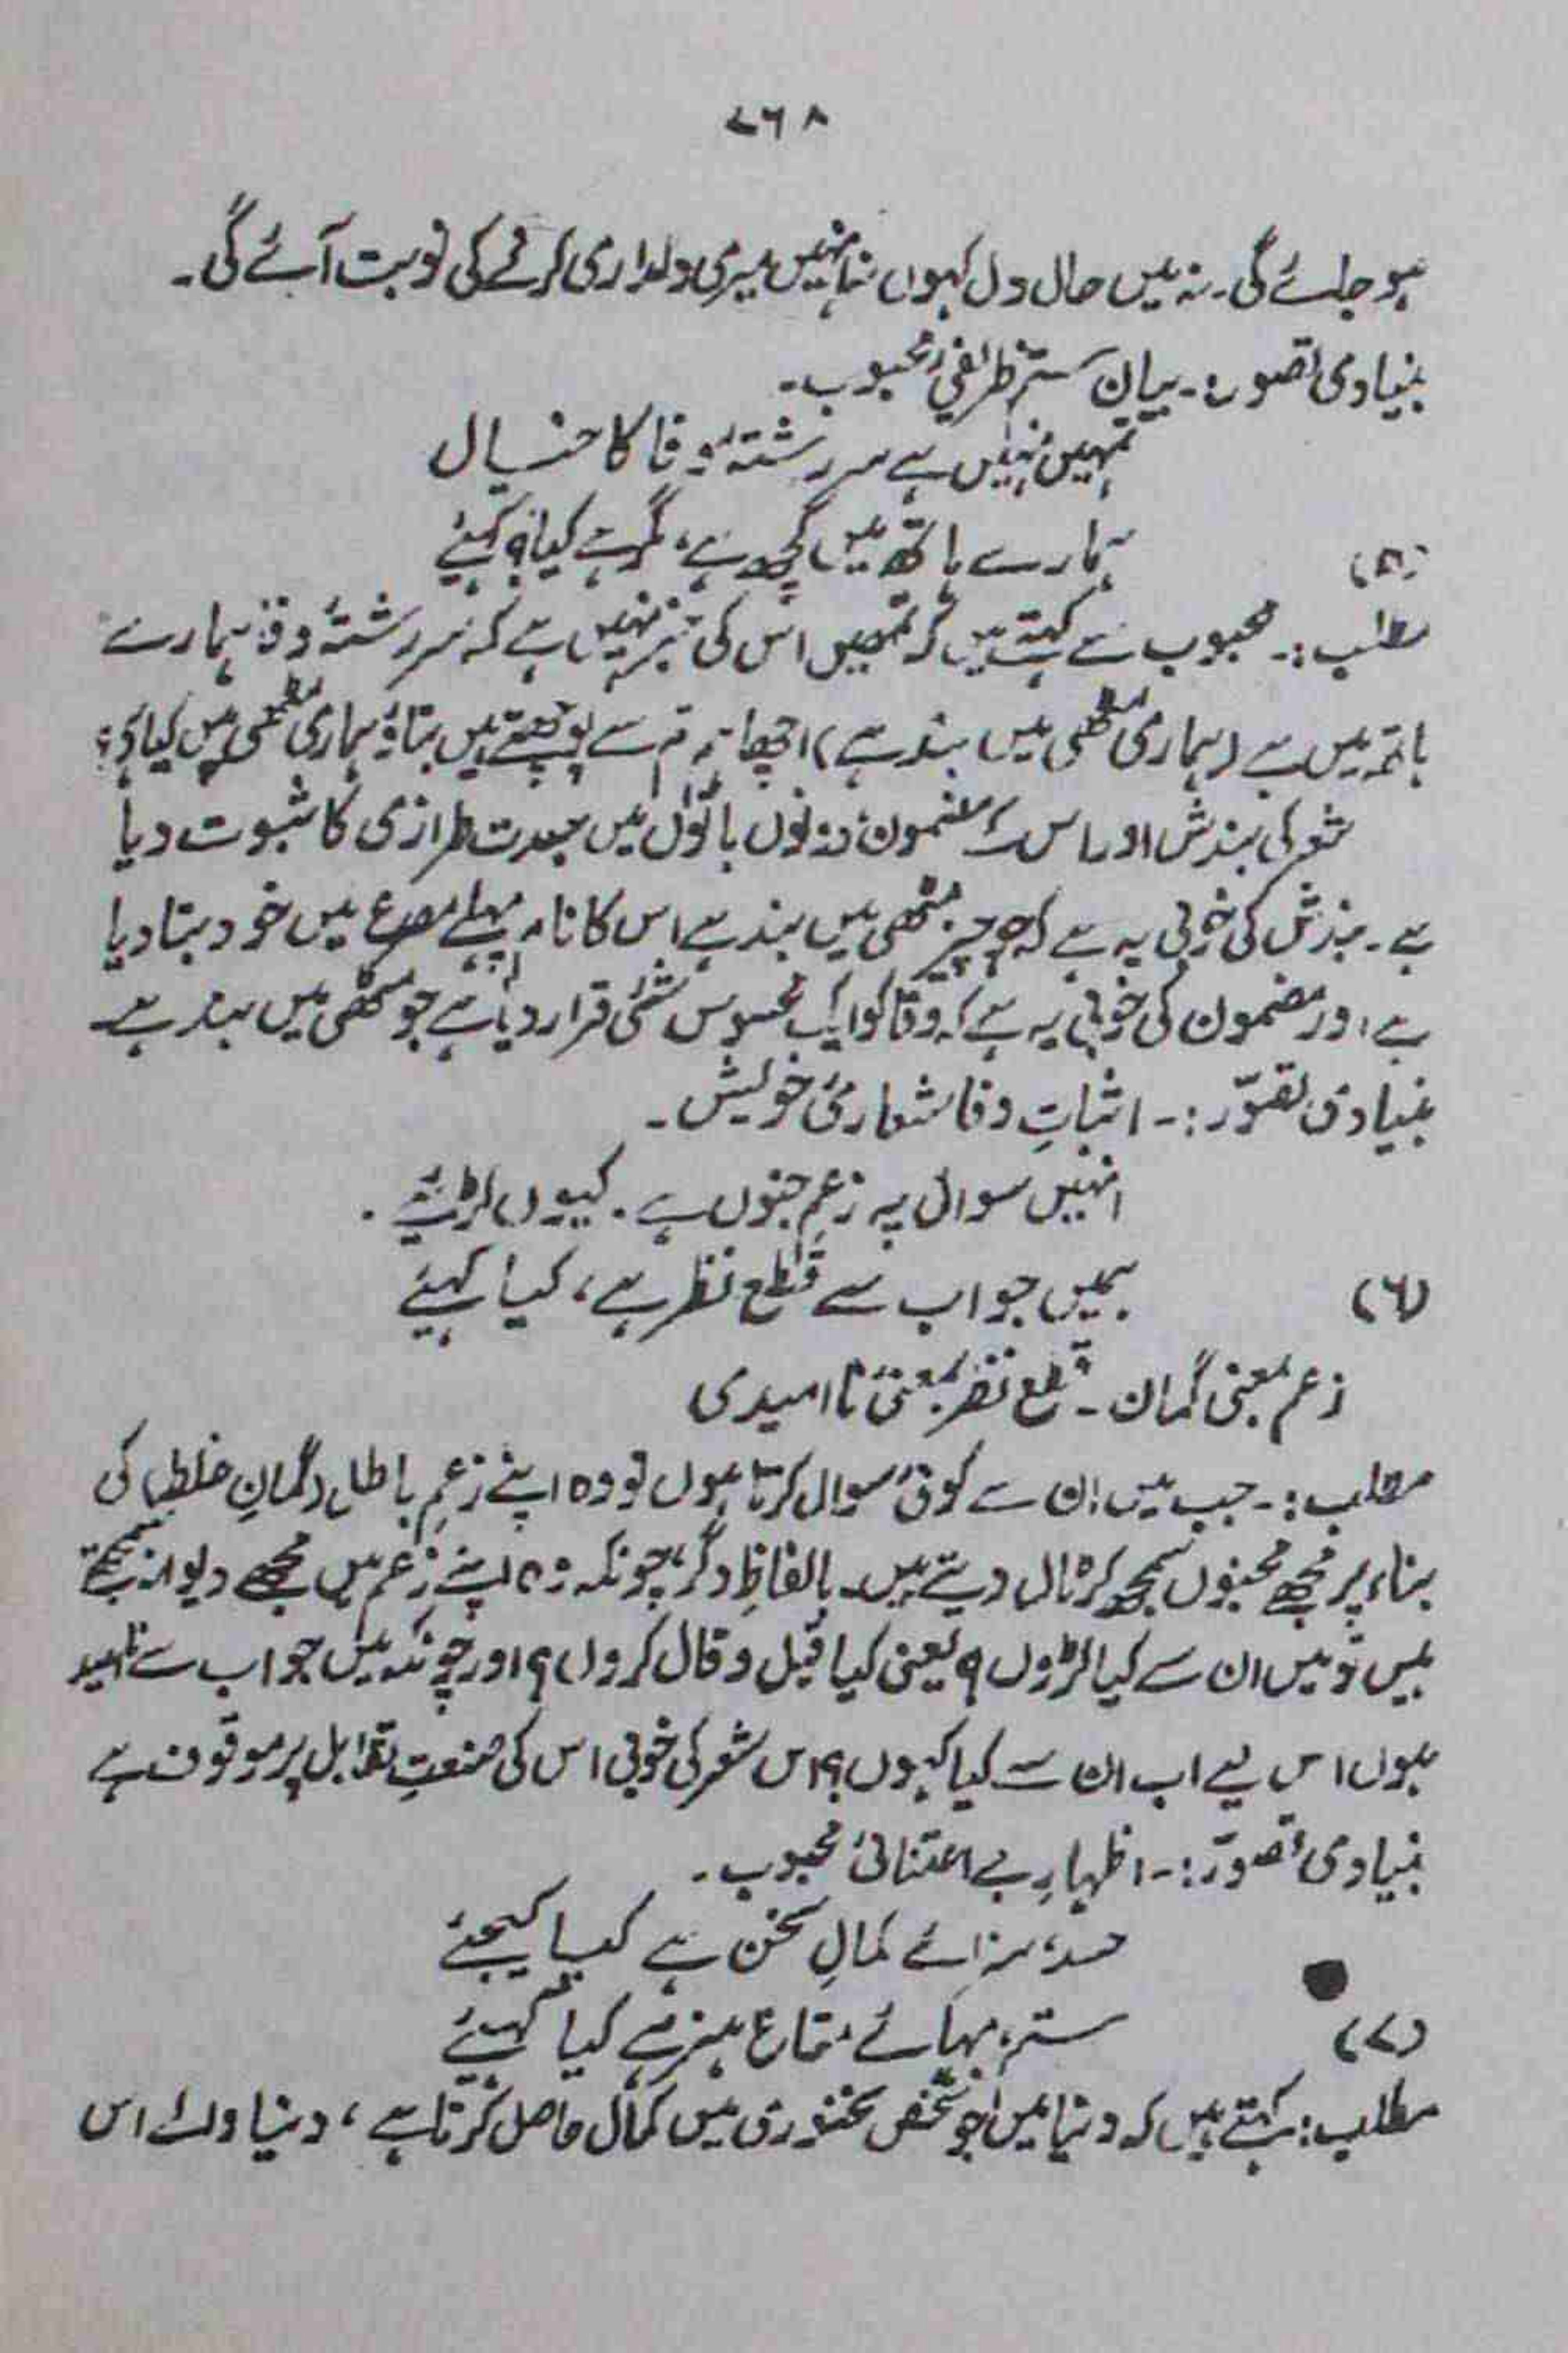 ۷۶۸
ہو جائے گی۔ نہ میں حال دل کہوں نہ انہیں میری دلداری کرنے کی نوبت آئے گی۔
بنیادی تصور:۔ بیان ستم ظریفیٔ محبوب۔
تمہیں نہیں ہے سررشتۂ وفا کا خیال
ہمارے ہاتھ میں کچھ ہے، مگر ہے کیا؟ کہئے
(۵)
مطلب:۔ محبوب سے کہتے ہیں کہ تمہیں اس کی خبر نہیں ہے کہ سررشتۂ وفا ہمارے
ہاتھ میں ہے (ہماری مٹھی میں بند ہے) اچھا ہم تم سے پوچھتے ہیں بتاؤ ہماری مٹھی میں کیا ہے؟
شعر کی بندش اور اس کے مضمون دونوں باتوں میں جدت طرازی کا ثبوت دیا
ہے۔ بندش کی خوبی یہ ہے کہ جو چیز مٹھی میں بند ہے اس کا نام پہلے مصرع میں خود بتا دیا
ہے، اور مضمون کی خوبی یہ ہے کہ وفا کو ایک محسوس شئی قرار دیا ہے جو مٹھی میں بند ہے۔
بنیادی تصوّر:۔ اثباتِ وفا شعاریٔ خویش۔
انہیں سوال پہ زعمِ جنوں ہے۔ کیوں لڑیئے۔
ہمیں جواب سے قطع نظر ہے، کیا کہیئے
(۶)
زعم بمعنی گمان۔ قطع نظر بمعنی نا امیدی
مطلب:۔ جب میں ان سے کوئی سوال کرتا ہوں تو وہ اپنے زعمِ باطل (گمانِ غلط) کی
بناء پر مجھے مجنوں سمجھ کر ٹال دیتے ہیں۔ بالفاظِ دگر، چونکہ وہ اپنے زعم میں مجھے دیوانہ سمجھتے
ہیں تو میں ان سے کیا لڑوں؟ یعنی کیا قیل و قال کروں؟ اور چونکہ میں جواب سے ناامید
ہوں اس لیے اب ان سے کیا کہوں؟ اس شعر کی خوبی اس کی صنعتِ تقابل پر موقوف ہے
بنیادی تصوّر:۔ اظہارِ بے اعتنائیٔ محبوب۔
حسد، سزائے کمالِ سخن ہے کیا کیجئے
ستم، بہائے متاع ہنر ہے کیا کہیئے
(۷)
مطلب: کہتے ہیں کہ دنیا میں جو شخص سخنوری میں کمال حاصل کرتا ہے، دنیا والے اس